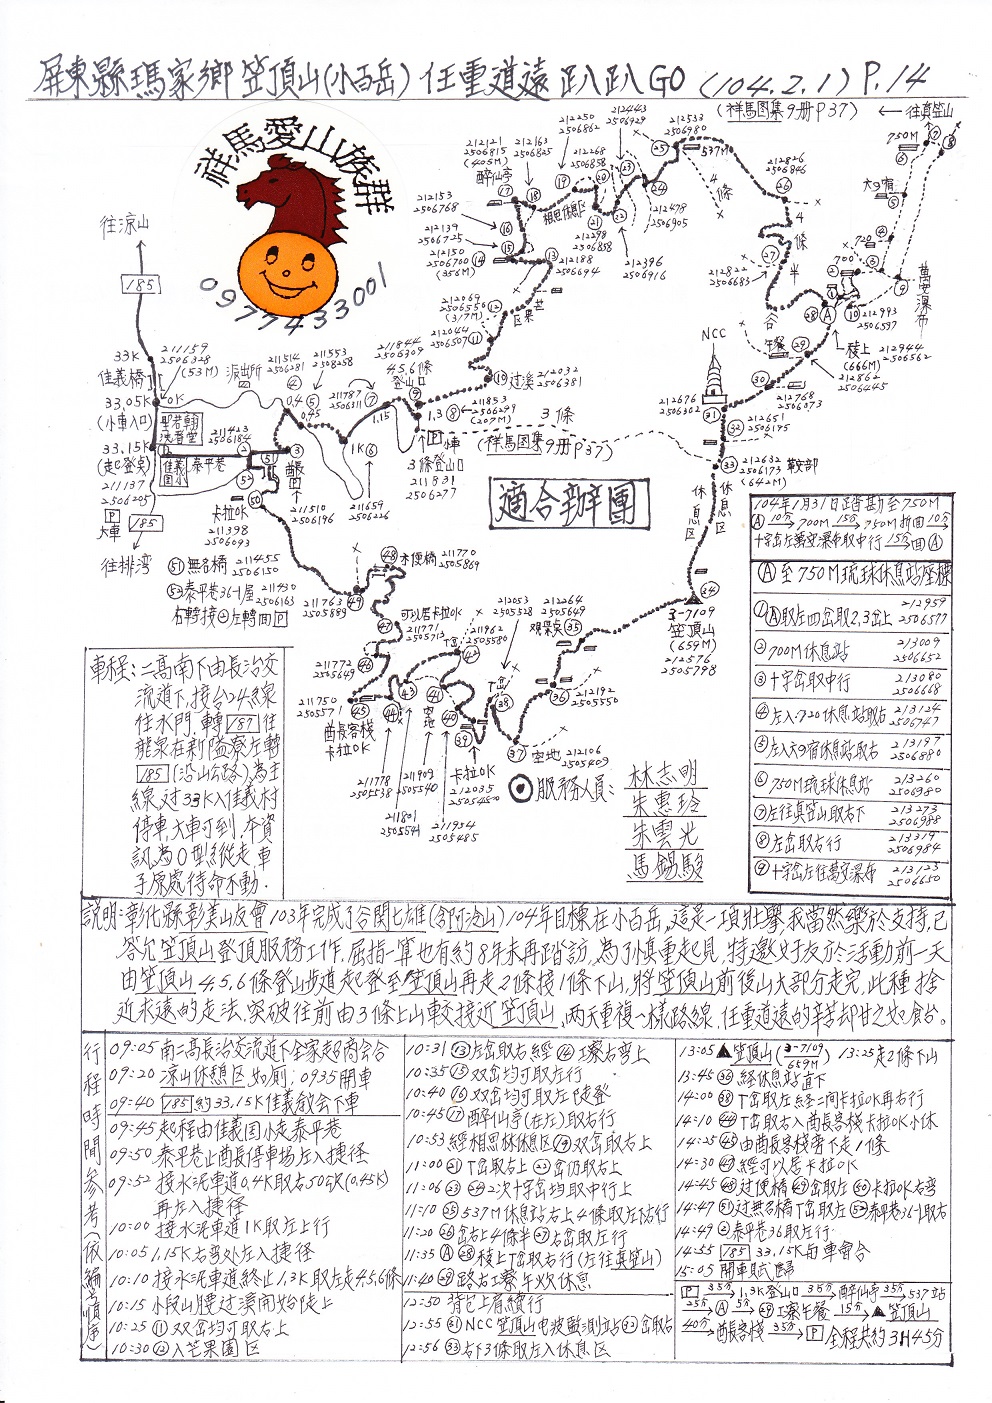 屏東縣瑪家鄉笠頂山(小百岳)任重道遠趴趴GO (104.2.1) P.14
(祥馬图集9册P37)
←往真笠山
祥馬愛山族群
0977433001
往凉山
185
33K
佳義橋
33.05K
(小車入口)
33.15K
(起登点)
211137
2506205
P
大車
185
往排湾
211159
2506328
(53M)
0K
派出所
泰平巷
佳義国小
211423
2506184
211514
2506281
0.4
0.45
211553
2508258
211787
2506311
1.15
1K
211844
2506309
4.5.6條
登山口
1.3
211853
2506299
(207M)
P
小車
3條登山口
211831
2506277
(祥馬图集9册P37)
3條
211659
2506226
211510
2506196
卡拉OK
211398
2506093
51 無名橋 211455
2506150
52 泰平巷36-1屋 211430
2506163
右轉接②左轉面回
212121
2506815
(405M)
醉仙亭
212163
2506825
212250
2506862
212268
2506858
212443
2506929
212533
2506980
537M
4條
212826
2506846
4條半
212153
2506768
212139
2506725
212150
2506700
(356M)
相思休息区
212298
2506858
212478
2506905
212396
2506916
212188
2506694
芒果区
212069
2506556
(317M)
212044
2506507
过溪 212032
2506381
212822
2506685
午餐
750M
大口宿
720
700
萬安瀑布
212993
2506597
稜上
212944
2506562
(666M)
212862
2506445
212768
2506073
NCC
212676
2506302
212651
2506195
212632
2506173 鞍部
(642M)
休息区
休息区
適合辦團
3-7109
笠頂山
(659M)
212576
2505798
木便橋 211770
2505869
211763
2505889
可以居卡拉OK
211771
2505713
211772
2505649
211750
2505571
酋長客栈
卡拉OK
211962
2505580
T岔
空地
T岔
212053
2505528
观景点
212264
2505649
212192
2505550
空地 212106
2505409
卡拉OK
212035
211778
2505538
211801
2505541
211909
2505540
211954
2505485
服務人員:
林志明
朱惠玲
朱雲光
馬錫駿
104年1月31日踏勘至750M
Ⓐ 10分→700M 15分→750M折回 10分→
十字岔左萬安瀑布取中行 15分→回Ⓐ
Ⓐ至750M琉球休息站座標
① Ⓐ取左四岔取2,3岔上 212959
2506577
② 700M休息站 213009
2506652
③ 十字岔取中行 213080
2506668
④ 左入720休息站取右 213124
2506747
⑤ 左入大口宿休息站取右 213197
2506880
⑥ 750M琉球休息站 213260
2506980
⑦ 左往真笠山取右下 213273
2506988
⑧ 左岔取右行 213319
2506984
⑨ 十字岔左往萬安瀑布 213123
2506650
車程:二高南下由長治交
流道下,接台24線
往水門,轉187往
龍泉在新隘寮左轉
185(沿山公路)為主
線,过33K入佳義村
停車,大車可到,本資
訊為O型縱走,車
子原處待命不動.
説明:彰化縣彰美山友會103年完成了谷関七雄(含阿冷山)104年目標在小百岳,這是一項壯舉,我當然樂於支持,已
答允笠頂山登頂服務工作,屈指一算也有約8年未再踏訪,為了慎重起見,特邀好友於活動前一天
由笠頂山4.5.6條登山步道起登至笠頂山再走2條接1條下山,將笠頂山前後山大部分走完,此種捨
近求遠的走法,突破往前由3條上山較接近笠頂山,两天重複一樣路線,任重道遠的辛苦却甘之如飴。
行程時間參考(依編号順序)
09:05 南二高長治交流道下全家超商会合
09:20 凉山休憩区,如厠,0935開車
09:40 185約33.15K佳義教会下車
09:45 起程由佳義国小走泰平巷
09:50 泰平巷止酋長停車場左入捷徑
09:52 接水泥車道0.4K取右50公尺(0.45K)
再左入捷徑
10:00 接水泥車道1K取左上行
10:05 1.15K右彎处左入捷徑
10:10 接水泥車道終止1.3K取左走4.5.6條
10:15 小段山腰过溪開始陡上
10:25 ⑪双岔均可取右上
10:30 ⑫入芒果園区
10:31 ⑬左岔取右經⑭工寮右彎上
10:35 ⑮双岔均可取左行
10:40 ⑯双岔均可取左陡登
10:45 ⑰醉仙亭(在左)取右行
10:53 經相思林休息区⑲双岔取右上
11:00 ㉑T岔取右上㉒岔仍取右上
11:06 ㉓㉔2次十字岔均取中行上
11:10 ㉕537M休息站右上4條取左下右行
11:20 ㉖岔右上4條半㉗右岔取左行
11:35 Ⓐ㉘稜上T岔取右行(左往真笠山)
11:40 ㉙路右工寮午炊休息
12:50 背包上肩續行
12:55 ㉛NCC笠頂山电波監測站㉜岔取右
12:56 ㉝右下3條取左入休息区
13:05 ▲笠頂山(3-7109 659M) 13:25走2條下山
13:45 ㊱經休息站直下
14:00 ㊳T岔取左經二间卡拉OK再右行
14:10 ㊹T岔取右入酋長客栈卡拉OK小休
14:25 ㊺由酋長客栈旁下走1條
14:30 ㊼經可以居卡拉OK
14:45 ㊽过便橋㊾岔取左㊿卡拉OK右彎
14:47 51过無名橋T岔取左52泰平巷36-1取右
14:49 ②泰平巷36取左行
14:55 185 33.15K与車會合
15:05 開車賦歸
P 35分→1.3K登山口 35分→醉仙亭 35分→537站
25分→Ⓐ 5分→㉙工寮午餐 15分→▲笠頂山
40分→酋長客栈 35分→P 全程共約3H45分